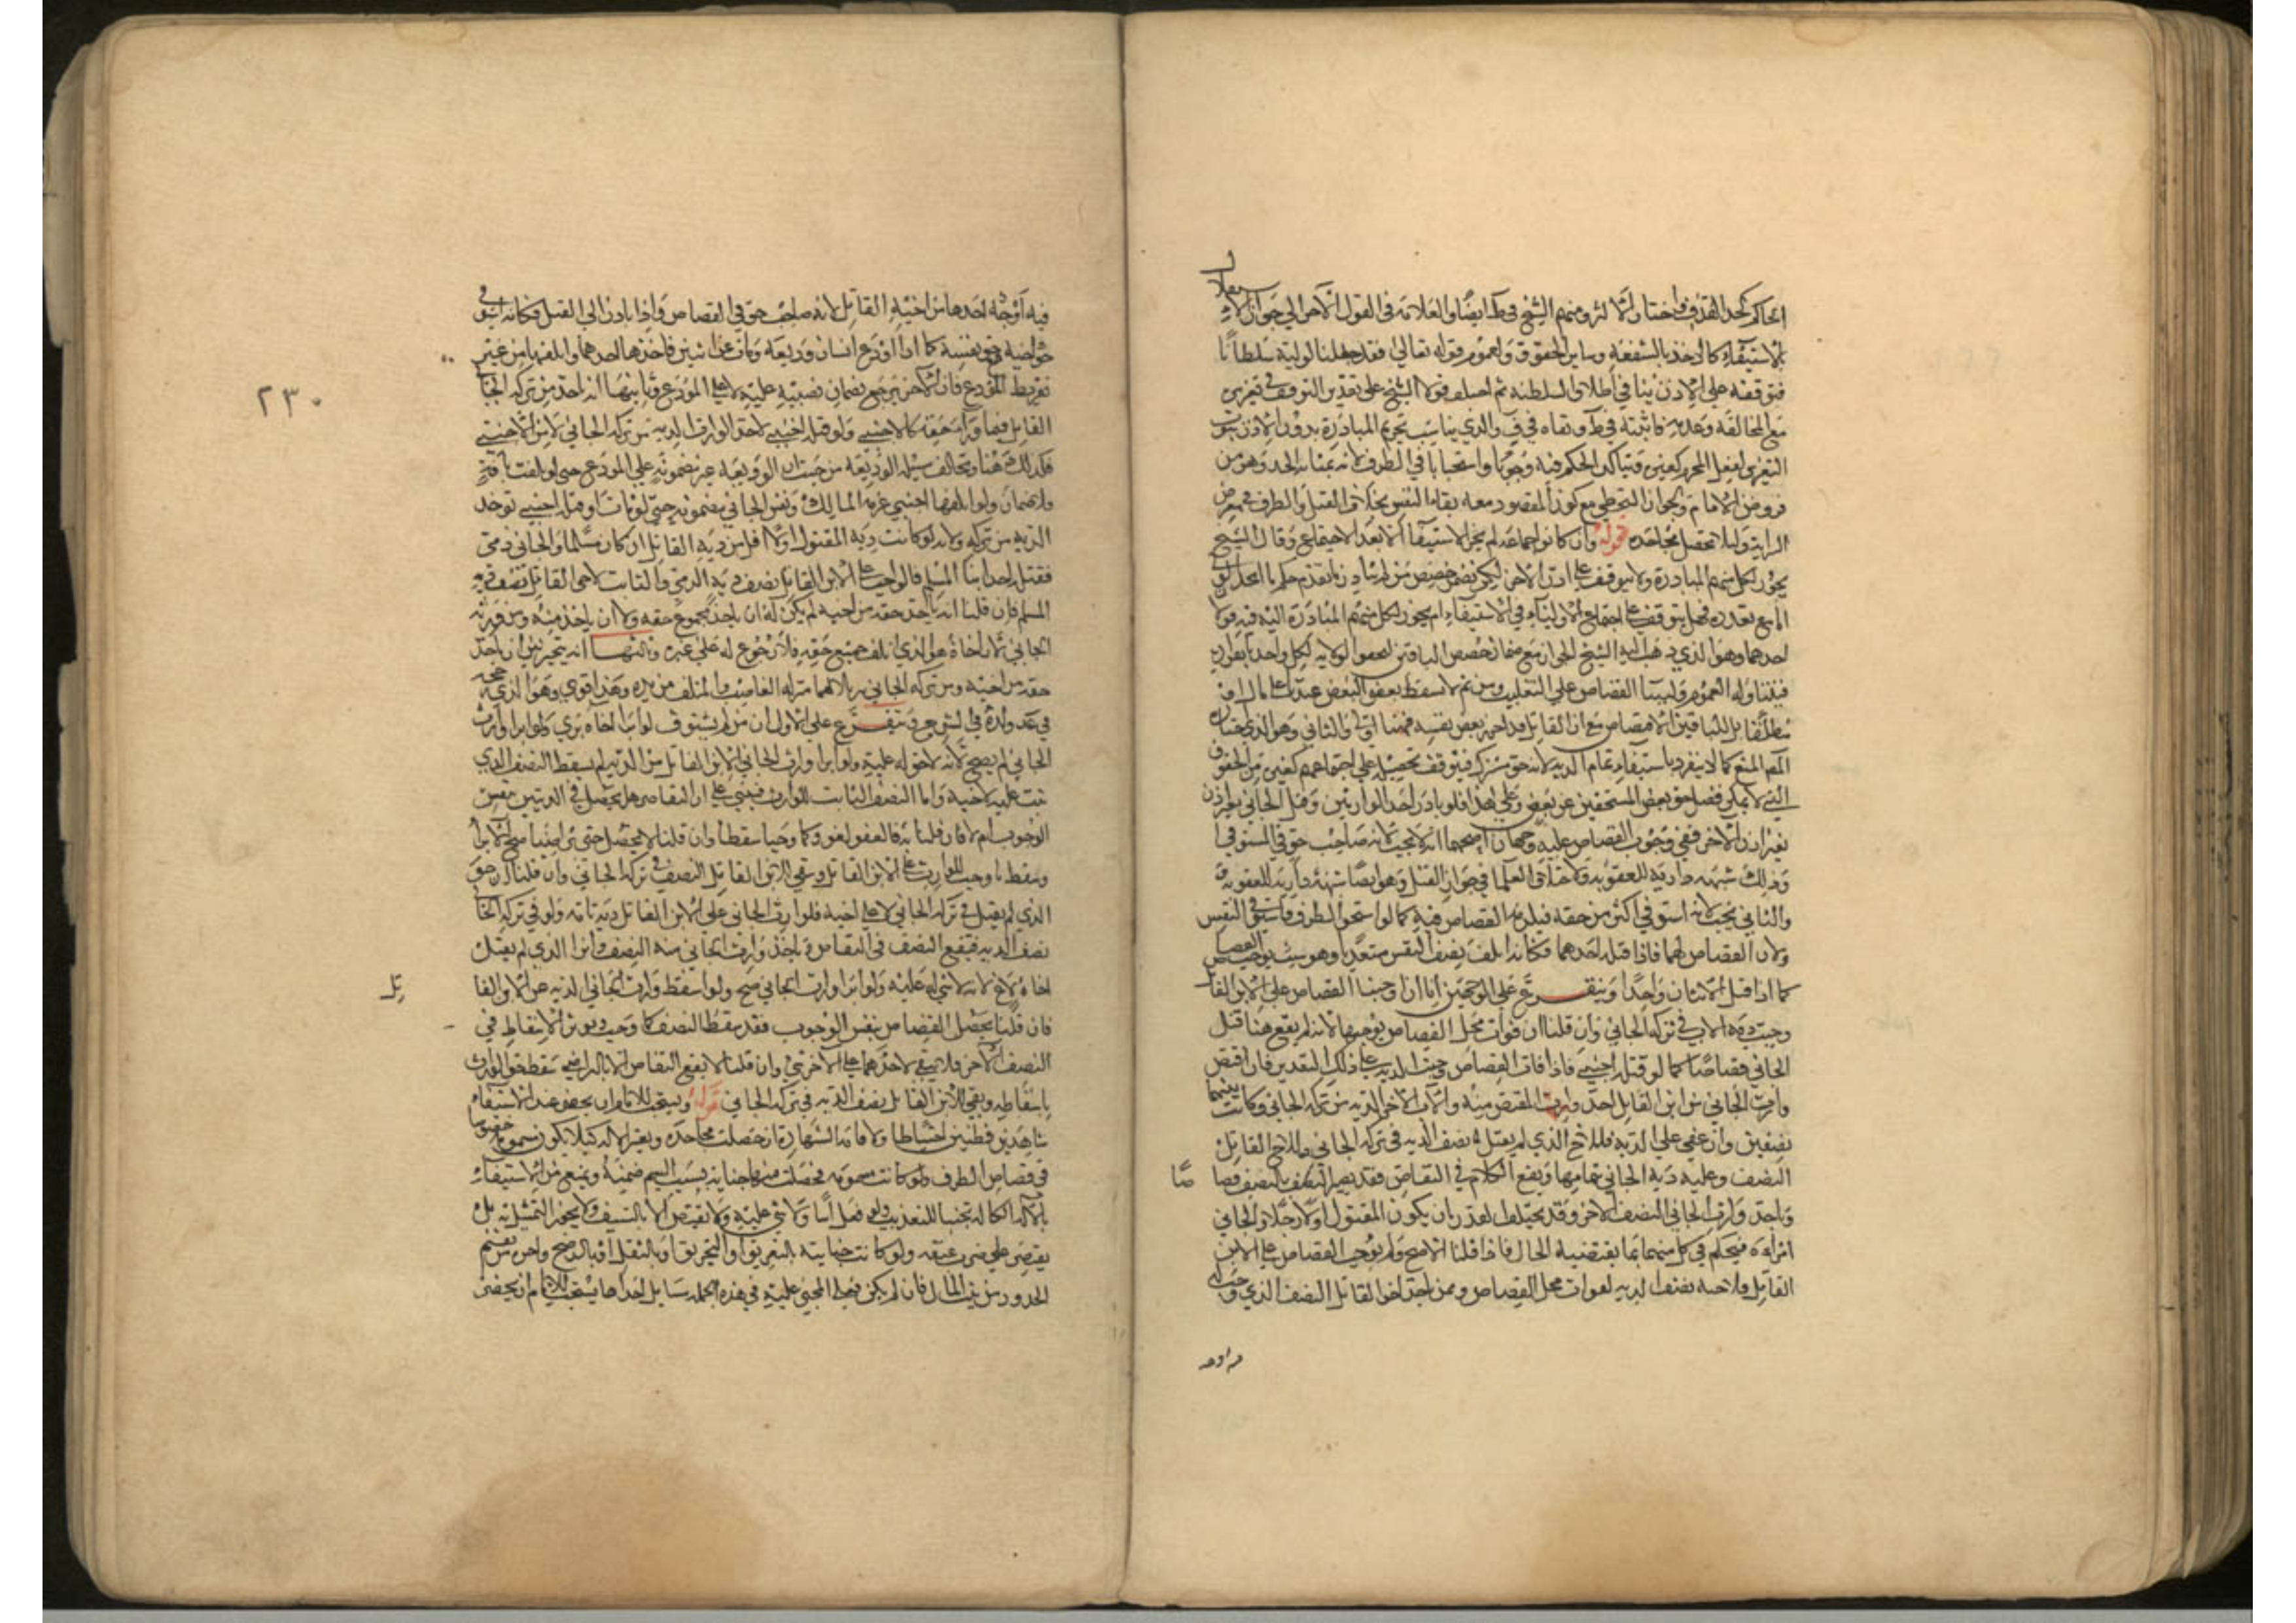 الحاكم كحد القذف واختار الاكثر ومنهم الشيخ في ط ايضا والعلامة في القول الاخر الي جواز الاستقلال
بالاستيفاء كالاخذ بالشفعة وساير الحقوق ولعموم قوله تعالي فقد جعلنا لوليه سلطانا
فتوقفه علي الاذن ينافي اطلاق السلطنة ثم اختلف قولا الشيخ علي تقدير التوقف في تعزيره
مع المخالفة وعدمه فاثبته في ط ونفاه في ف والذي يناسب تحريم المبادرة بدون الاذن ثبوت
التعزير لفعل المحرم كغيره ويتاكد الحكم فيه وجوبا واستحبابا في الطرف لانه بمثابة الحد وهو من
فروض الامام ولجواز التخطي مع كون المقصود معه بقاء النفس بخلاف القتل والطرف في معرض
السراية ولئلا تحصل مجاحدة قوله وان كانوا جماعة لم يجز الاستيفا الا بعد الاجتماع وقال الشيخ
يجوز لكل منهم المبادرة ولا يتوقف علي اذن الاخر لكن يضمن حصص من لم ياذن
المانع بعدده فهل يتوقف علي اجتماع الاولياء في الاستيفاء ام يجوز لكل منهم المبادرة اليه فيه قولان
احدهما وهو الذي ذهب اليه الشيخ الجواز مع ضمان حصص الباقين لتحقق الولاية لكل واحد بانفراده
فيتناوله العموم ولبناء القصاص علي التغليب ومن ثم لا يسقط بعفو البعض علي مال او
مطلقا بل للباقين الاقتصاص مع ان القاتل قد احرز بعض نفسه فهنا اولي والثاني وهو الذي اختاره
المص المنع كما لا ينفرد باستيفاء تمام الدية لانه حق مشترك فيتوقف تحصيله علي اجتماعهم كغيره من الحقوق
التي لا يمكن فصل حق بعض المستحقين عن بعض وعلي هذا فلو بادر احد الوارثين وقتل الجاني بغير اذن
بغير اذن الاخر ففي وجوب القصاص عليه وجهان اصحهما انه لا يجب لانه صاحب حق في المستوفي
وذلك شبهة دارية للعقوبة ولاختلاف العلما في جواز القتل وهو ايضا شبهة دارية للعقوبة
والثاني يجب لانه استوفي اكثر من حقه فيلزمه القصاص فيه كما لو استحق الطرف فاستوفي النفس
ولان القصاص لهما فاذا قتله احدهما فكانه اتلف نصف النفس متعديا وهو سبب يوجب القصاص
كما اذا قتل الاثنان واحدا ويتفرع علي الوجهين انا ان اوجبنا القصاص علي الابن القاتل
وجبت دية الاب في تركة الجاني وان قلنا ان فوات محل القصاص يوجبها لانه لم يقع هنا قتل
الجاني قصاصا كما لو قتله اجنبي فاذا فات القصاص وجبت الدية علي ذلك التقدير فان اقتص
وارث الجاني من ابن القاتل اخذ وارث المقتص منه والابن الاخر الدية من تركة الجاني وكانت بينهما
نصفين وان عفي علي الدية فللاخ الذي لم يقتل نصف الدية في تركة الجاني وللاخ القاتل
النصف وعليه دية الجاني بتمامها ويقع الكلام في التقاص فقد يصير النصف بالنصف قصاصا
وياخذ وارث الجاني النصف الاخر وقد يختلف القدر بان يكون المقتول اولا رجلا والجاني
امراة فيحكم في كل منهما بما يقتضيه الحال فاذا قلنا الاصح ولم يوجب القصاص علي الابن
القاتل ولاخيه نصف الدية لفوات محل القصاص وممن ياخذ اخو القاتل النصف الذي وجب له
فيه اوجه
فيه اوجه احدها من اخيه القاتل لانه صاحب حق في القصاص واذا بادر الي القتل فكانه استوفي
حق اخيه في حق نفسه كما اذا اودع انسان وديعة ومات عن اثنين فاخذها احدهما واتلفها من غير
تفريط المودع فان الاخر يرجع بضمان نصيبه عليه لا علي المودع وثانيها انه ياخذ من تركة الجاني
القاتل فيما وراء حقه كالاجنبي ولو قتله اجنبي لاخذ الوارث الدية من تركة الجاني لا من الاجنبي
فكذلك هنا وتخالف مسئلة الوديعة من حيث ان الوديعة غير مضمونة علي المودع حتي لو تلفت بافة
ولا ضمان ولو اتلفها اجنبي غرمه المالك ونفس الجاني مضمونة حتي لو مات او قتله اجنبي توخذ
الدية من تركته ولانه لو كانت دية المقتول اولا اقل من دية القاتل ان كان مسلما والجاني ذمي
فقتله احد ابنا المسلم فالواجب علي الابن القاتل نصف دية الذمي والثابت لاخي القاتل نصف دية
المسلم فان قلنا انه ياخذ حقه من اخيه لم يكن له ان ياخذ مجموع حقه ولا ان ياخذ منه ومن ورثة
الجاني لان اخاه هو الذي اتلف جميع حقه فلا رجوع له علي غيره وثالثها انه يتخير بين ان ياخذ
حقه من اخيه ومن تركة الجاني تنزيلا لهما منزلة الغاصب والمتلف من يده وهذا قوي وهو الذي رجحه
في عد وولده في الشرح ويتفرع علي الاول ان من لم يستوف لو ابرا اخاه بري ولو ابرا وارث
الجاني لم يصح لانه لا حق له عليه ولو ابرا وارث الجاني الابن القاتل من الدية لم يسقط النصف الذي
ثبت عليه لاخيه واما النصف الثابت للوارث فيبني علي ان التقاص هل يحصل في الديتين بنفس
الوجوب ام لا فان قلنا به فالعفو لغو وكما وجبا سقطا وان قلنا لا يحصل حتي يتراضيا صح الابرا
وسقط ما وجب للوارث علي الابن القاتل وبقي للابن القاتل النصف في تركة الجاني وان قلنا ان حق
الذي لم يقتل في تركة الجاني لا علي اخيه فلوارث الجاني علي الابن القاتل دية تامة وله في تركة الجاني
نصف الدية فيقع النصف في التقاص وياخذ وارث الجاني منه النصف ولو ابرا الذي لم يقتل
اخاه بلاغ لانه لا شي له عليه ولو ابرا وارث الجاني صح ولو اسقط وارث الجاني الدية عن الابن القاتل
فان قلنا بحصل القصاص بنفس الوجوب فقد سقط النصف كما وجب ويوثر الاسقاط في
النصف الاخر فلا يبقي لاحدهما علي الاخر شي وان قلنا لا يقع التقاص الا بالتراضي سقط حق الوارث
باسقاطه وبقي للابن القاتل نصف الدية في تركة الجاني قوله ويستحب للامام ان يحضر عند الاستيفاء
شاهدين فطنين احتياطا ولاقامة الشهادة ان حصلت مجاحدة ويعتبر الالة كيلا يكون مسمومة خصوصا
في قصاص الطرف ولو كانت مسمومة فحصلت منها جناية بسبب السم ضمنه ويمنع من الاستيفاء
بالالة الكالة تجنبا للتعذيب ولو فعل اسا ولا شي عليه ولا يقتص الا بالسيف ولا يجوز التمثيل به بل
يقتصر علي ضرب عنقه ولو كانت جنايته بالتغريق او التحريق او بالثقل او بالرضخ واجرة من يقيم
الحدود من بيت المال فان لم يكن فعلي المجني عليه في هذه الجملة مسايل احداها يستحب للامام ان يحضر
٢٣٠